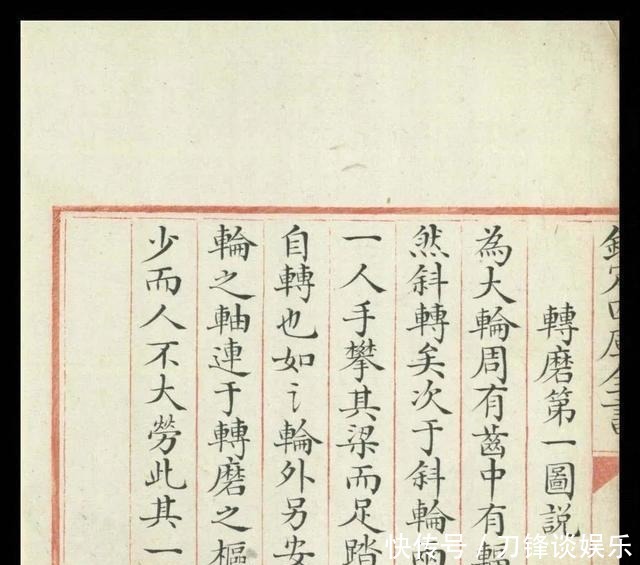 欽定四庫全書
轉磨第一圖說
為大輪周有齒中有
然斜轉矣次于斜輪
一人手攀其梁而足踏
自轉也如輪外另安
輪之軸連于轉磨之樞
少而人不大勞此其一
快传号/刀锋谈娱乐